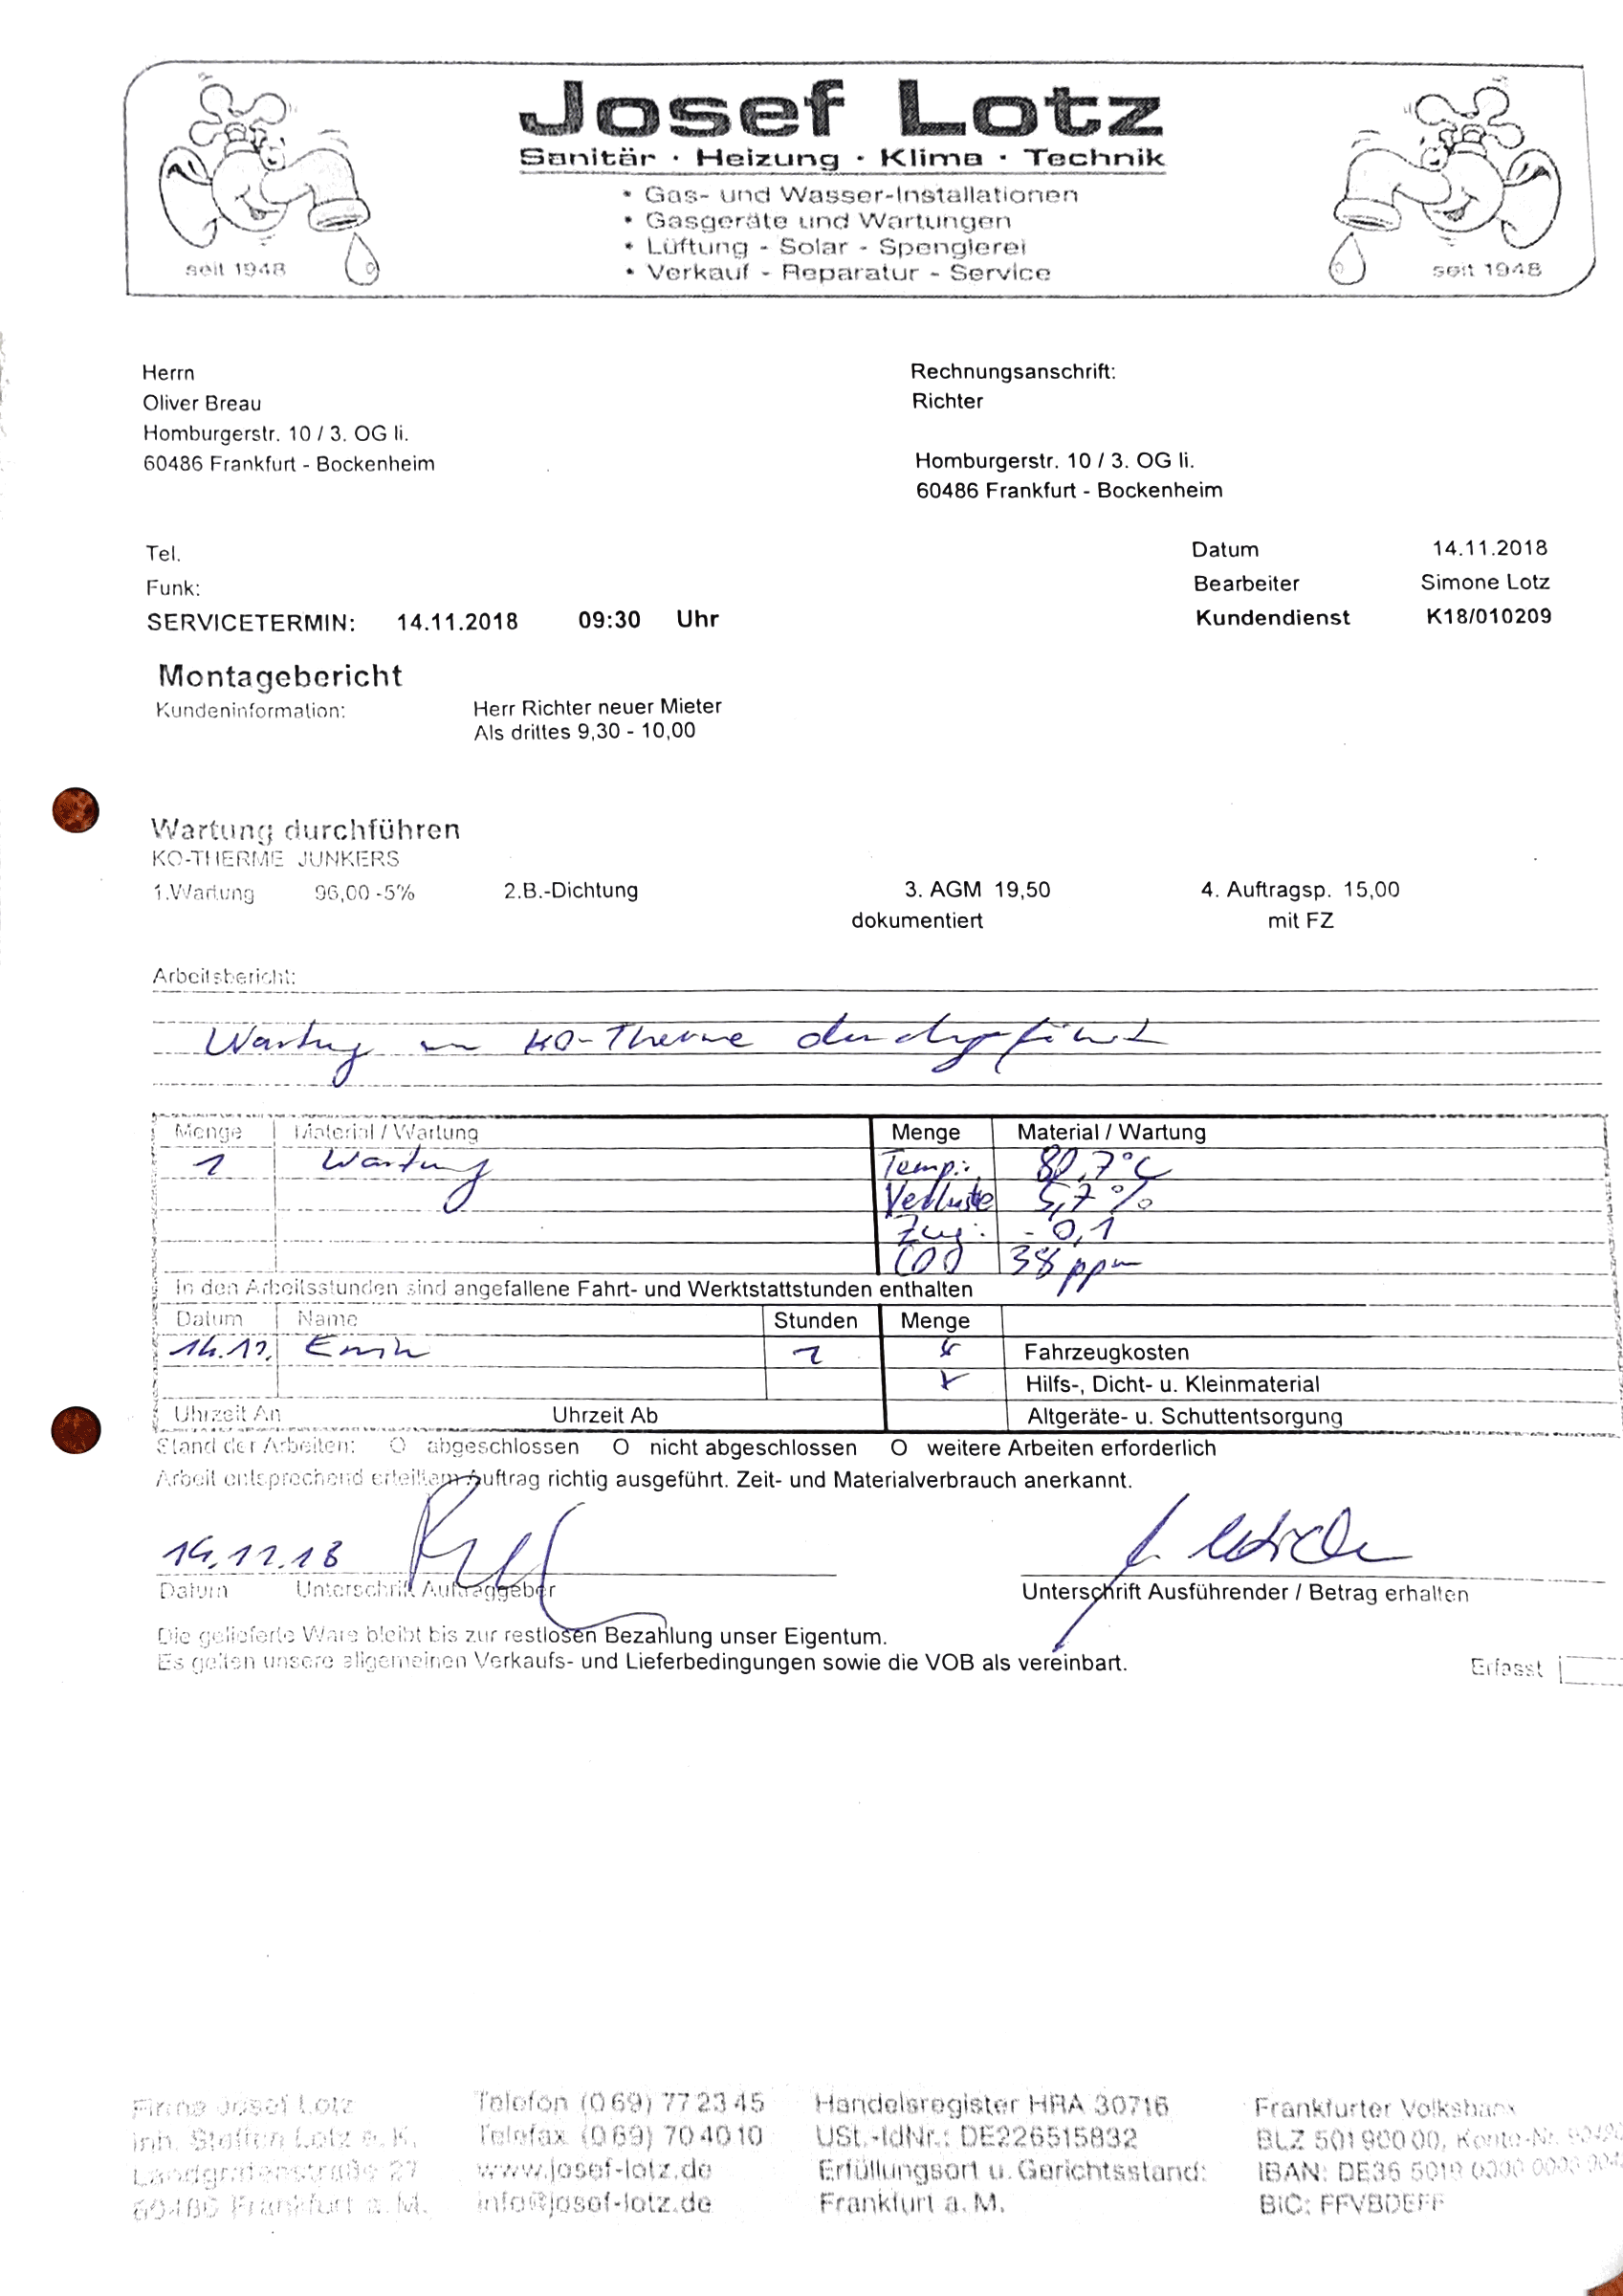 Josef Lotz
Sanitär · Heizung · Klima · Technik
• Gas- und Wasser-Installationen
• Gasgeräte und Wartungen
• Lüftung - Solar - Spenglerei
• Verkauf - Reparatur - Service
seit 1948
seit 1948
Herrn
Oliver Breau
Homburgerstr. 10 / 3. OG li.
60486 Frankfurt - Bockenheim
Rechnungsanschrift:
Richter
Homburgerstr. 10 / 3. OG li.
60486 Frankfurt - Bockenheim
Tel.
Funk:
SERVICETERMIN: 14.11.2018 09:30 Uhr
Datum 14.11.2018
Bearbeiter Simone Lotz
Kundendienst K18/010209
Montagebericht
Kundeninformation: Herr Richter neuer Mieter
Als drittes 9,30 - 10,00
Wartung durchführen
KO-THERME JUNKERS
1.Wartung 96,00 -5% 2.B.-Dichtung 3. AGM 19,50 4. Auftragsp. 15,00
dokumentiert mit FZ
Arbeitsbericht:
Wartung an KO-Therme durchgeführt
Menge Material / Wartung Menge Material / Wartung
1 Wartung Temp.: 80,7°C
Verluste 5,7 %
Zug: - 0,1
COO 38 ppm
In den Arbeitsstunden sind angefallene Fahrt- und Werktstattstunden enthalten
Datum Name Stunden Menge
14.11. Emin 1 Fahrzeugkosten
Hilfs-, Dicht- u. Kleinmaterial
Uhrzeit An Uhrzeit Ab Altgeräte- u. Schuttentsorgung
Stand der Arbeiten: O abgeschlossen O nicht abgeschlossen O weitere Arbeiten erforderlich
Arbeit entsprechend erteiltem Auftrag richtig ausgeführt. Zeit- und Materialverbrauch anerkannt.
14.11.18
Datum Unterschrift Auftraggeber
Unterschrift Ausführender / Betrag erhalten
Die gelieferte Ware bleibt bis zur restlosen Bezahlung unser Eigentum.
Es gelten unsere allgemeinen Verkaufs- und Lieferbedingungen sowie die VOB als vereinbart.
Erfasst
Firma Josef Lotz
Inh. Steffen Lotz e. K.
Landgrafenstraße 27
60486 Frankfurt a. M.
Telefon (0 69) 77 23 45
Telefax (0 69) 70 40 10
www.josef-lotz.de
info@josef-lotz.de
Handelsregister HRA 30716
USt.-IdNr.: DE226515832
Erfüllungsort u. Gerichtsstand:
Frankfurt a. M.
Frankfurter Volksbank
BLZ 501 900 00, Konto-Nr.
IBAN: DE36 5019 0000 0000
BIC: FFVBDEFF